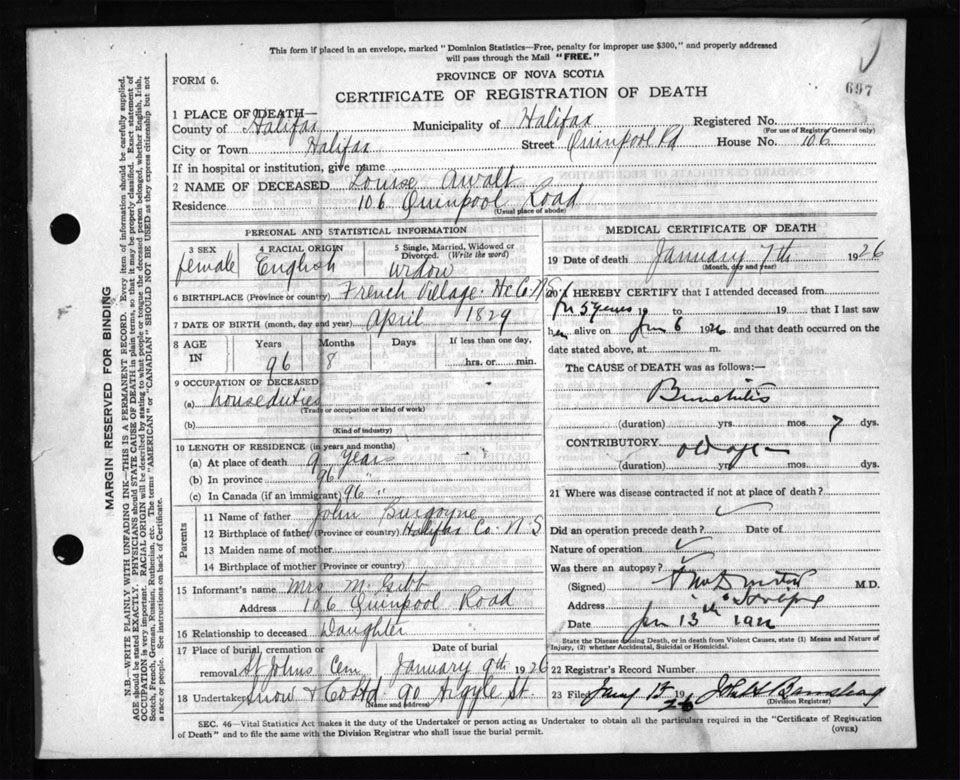 This form if placed in an envelope, marked "Dominion Statistics—Free, penalty for improper use $300," and properly addressed
will pass through the Mail "FREE."
FORM 6.
PROVINCE OF NOVA SCOTIA
697
CERTIFICATE OF REGISTRATION OF DEATH
1 PLACE OF DEATH—
County of Halifax Municipality of Halifax Registered No.
(For use of Registrar General only)
City or Town Halifax Street Quinpool Rd House No. 106
If in hospital or institution, give name
2 NAME OF DECEASED Louise Awalt
Residence 106 Quinpool Road
(Usual place of abode)
PERSONAL AND STATISTICAL INFORMATION
3 SEX 4 RACIAL ORIGIN 5 Single, Married, Widowed or Divorced. (Write the word)
female English widow
6 BIRTHPLACE (Province or country) French Village. Hx Co. N.S.
7 DATE OF BIRTH (month, day and year) April 1829
8 AGE IN Years Months Days If less than one day,
96 8 hrs. or min.
9 OCCUPATION OF DECEASED
(a) house duties
(Trade or occupation or kind of work)
(b)
(Kind of industry)
10 LENGTH OF RESIDENCE (in years and months)
(a) At place of death 9 years
(b) In province 96 "
(c) In Canada (if an immigrant) 96 "
Parents
11 Name of father John Burgoyne
12 Birthplace of father (Province or country) Halifax Co. N.S
13 Maiden name of mother
14 Birthplace of mother (Province or country)
15 Informant's name Mrs M. Gibb
Address 106 Quinpool Road
16 Relationship to deceased Daughter
17 Place of burial, cremation or removal Date of burial
St Johns Cem January 9th 1926
18 Undertaker Snow & Co Ltd 90 Argyle St.
(Name and address)
MEDICAL CERTIFICATE OF DEATH
19 Date of death January 7th 1926
(Month, day and year)
20 I HEREBY CERTIFY that I attended deceased from
for 5 years 19 to 19 that I last saw
her alive on Jan 6 1926 and that death occurred on the
date stated above, at m.
The CAUSE of DEATH was as follows:—
Bronchitis
(duration) yrs. mos. 7 dys.
CONTRIBUTORY old age
(duration) yrs. mos. dys.
21 Where was disease contracted if not at place of death?
Did an operation precede death? Date of
Nature of operation
Was there an autopsy?
(Signed) M.D.
Address
Date Jan 13th 1926
State the Disease Causing Death, or in death from Violent Causes, state (1) Means and Nature of
Injury, (2) whether Accidental, Suicidal or Homicidal.
22 Registrar's Record Number
23 Filed 1926
(Division Registrar)
SEC. 46—Vital Statistics Act makes it the duty of the Undertaker or person acting as Undertaker to obtain all the particulars required in the "Certificate of Registration
of Death" and to file the same with the Division Registrar who shall issue the burial permit.
(OVER)
MARGIN RESERVED FOR BINDING
N.B.—WRITE PLAINLY WITH UNFADING INK—THIS IS A PERMANENT RECORD. Every item of information should be carefully supplied.
AGE should be stated EXACTLY. PHYSICIANS should STATE CAUSE OF DEATH in plain terms, so that it may be properly classified. Exact statement of
OCCUPATION is very important. RACIAL ORIGIN will be described by stating to what people or tongue the deceased person belonged, whether English, Irish,
Scotch, French, German, Russian, Ruthenian, etc. The terms "AMERICAN" or "CANADIAN" SHOULD NOT BE USED as they express citizenship but not
a race or people. See instructions on back of Certificate.